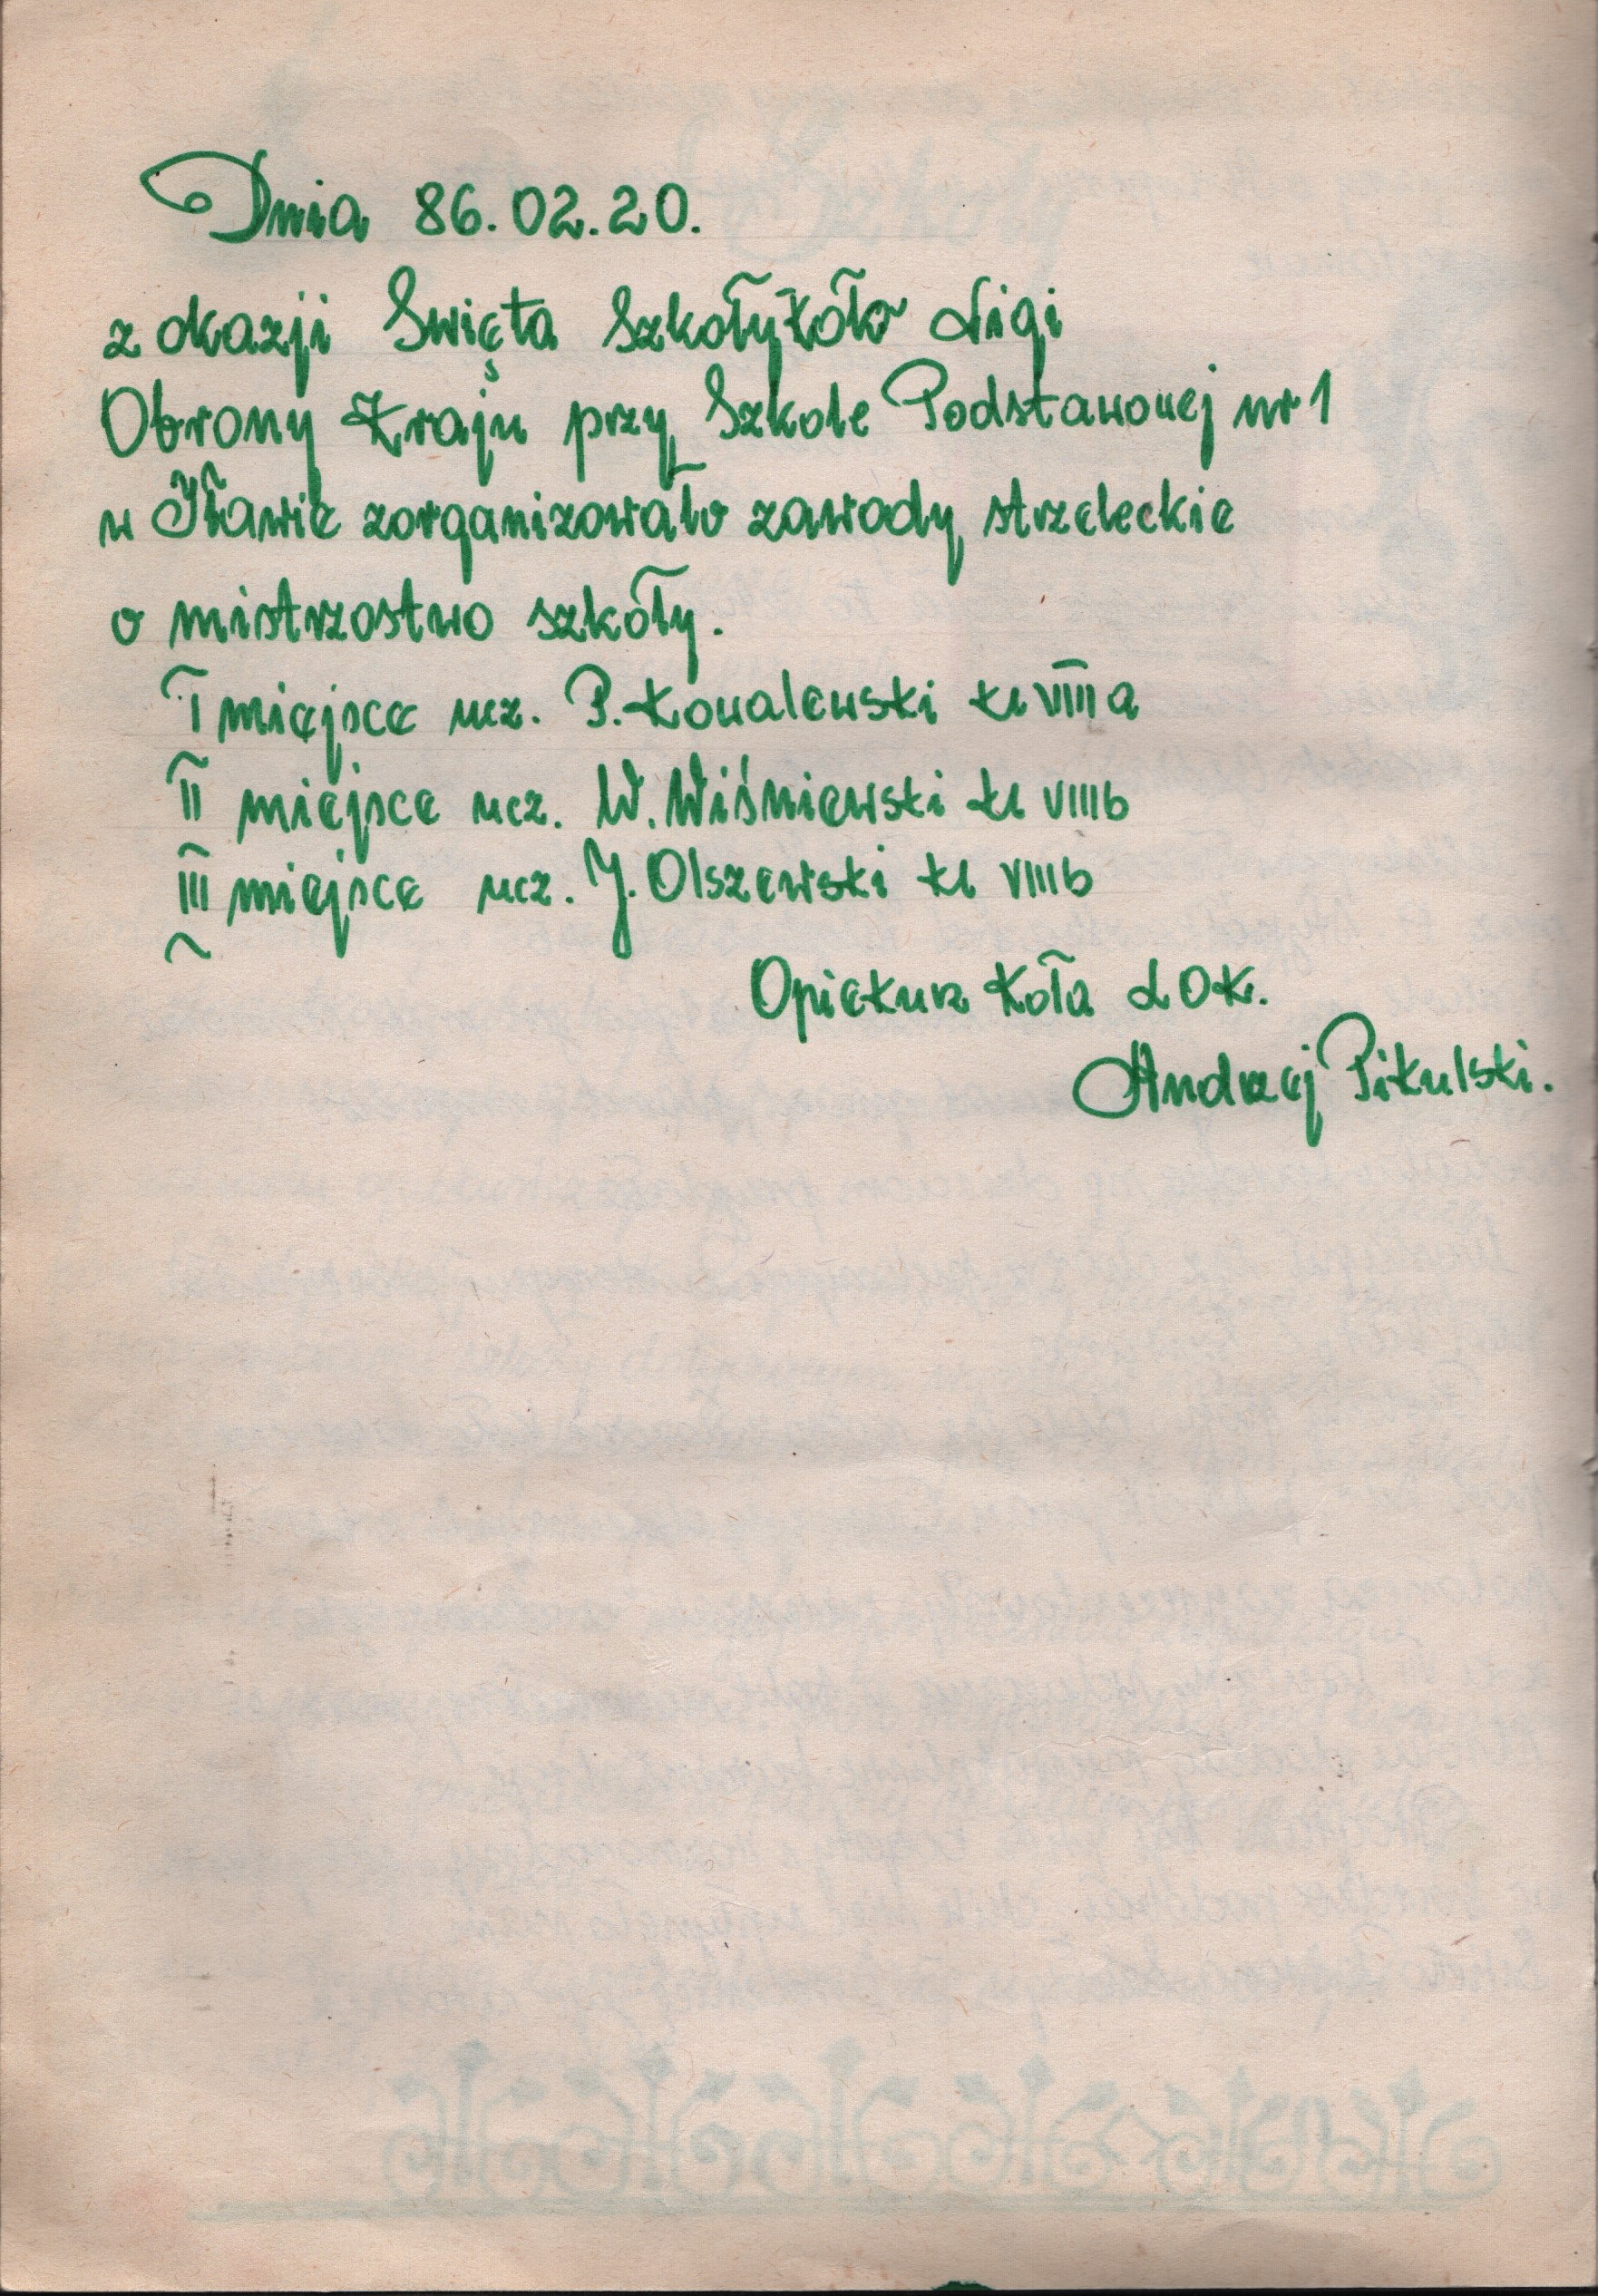 Dnia 86.02.20.
z okazji Święta Szkoły Koło Ligi
Obrony Kraju przy Szkole Podstawowej nr 1
w Iławie zorganizowało zawody strzeleckie
o mistrzostwo szkoły.
I miejsce ucz. P. Kowalewski kl VIII a
II miejsce ucz. W. Wiśniewski kl VIIIb
III miejsce ucz. J. Olszewski kl VIIIb
Opiekun Koła LOK.
Andrzej Pikulski.